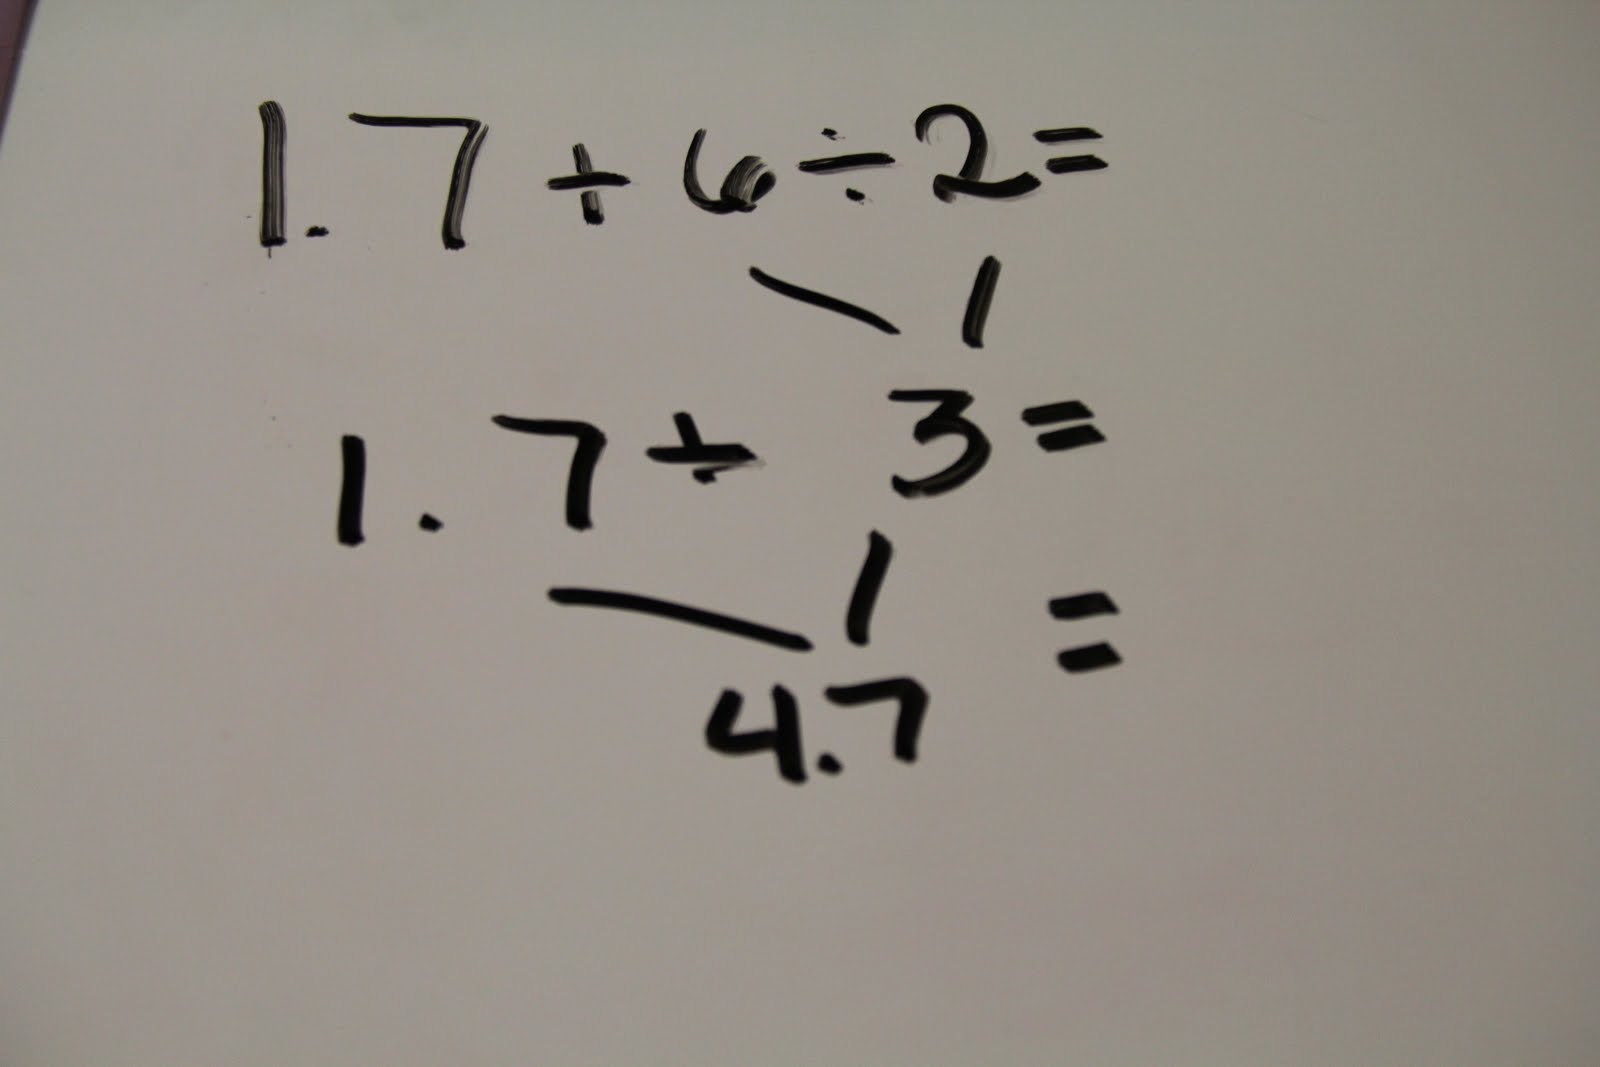 1.7+6÷2=
1.7+ 3=
=
4.7